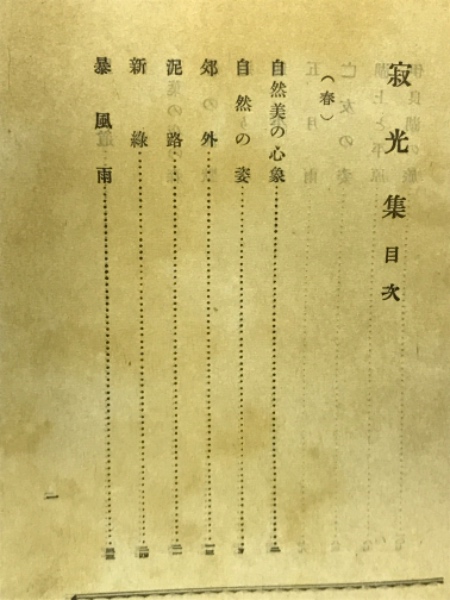 寂光集目次
（春）
自然美の心象
自然の姿
郊の外
泥路
新綠
暴風雨
一